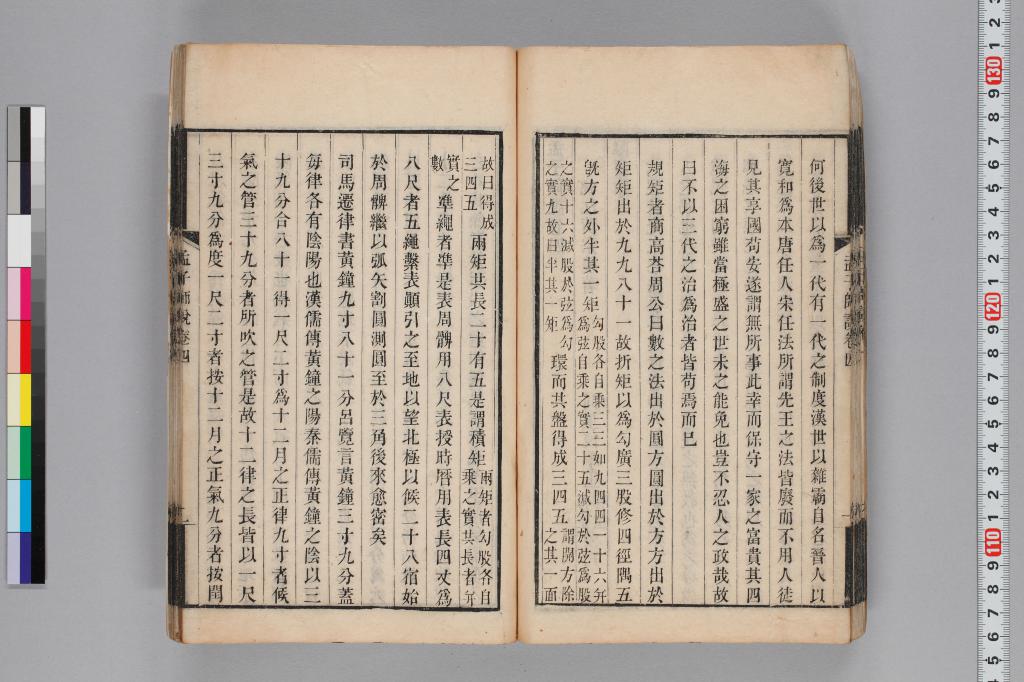 何後世以為一代有一代之制度漢世以雜霸自名晉人以
寬和為本唐任人宋任法所謂先王之法皆廢而不用人徒
見其享國苟安遂謂無所事此幸而保守一家之富貴其四
海之困窮雖當極盛之世未之能免也豈不忍人之政哉故
曰不以三代之治為治者皆苟焉而已
規矩者商高荅周公曰數之法出於圓方圓出於方方出於
矩矩出於九九八十一故折矩以為勾廣三股修四徑隅五
旣方之外半其一矩
勾股各自乘三三如九四四一十六并
為弦自乘之實二十五減勾於弦為股
之實十六減股於弦為勾
之實九故曰半其一矩
環而共盤得成三四五
謂開方除
之其一面
故曰得成
三四五
兩矩共長二十有五是謂積矩
兩矩者勾股各自
乘之實共長者并
實之
數
準繩者準是表周髀用八尺表授時曆用表長四丈為
八尺者五繩繫表顛引之至地以望北極以候二十八宿始
於周髀繼以弧矢割圓測圓至於三角後來愈密矣
司馬遷律書黃鐘九寸八十一分呂覽言黃鐘三寸九分蓋
每律各有陰陽也漢儒傳黃鐘之陽秦儒傳黃鐘之陰以三
十九分合八十一得一尺二寸為十二月之正律九寸者候
氣之管三十九分者所吹之管是故十二律之長皆以一尺
三寸九分為度一尺二寸者按十二月之正氣九分者按閏
孟子師說卷四
孟子師說卷四
130
120
110